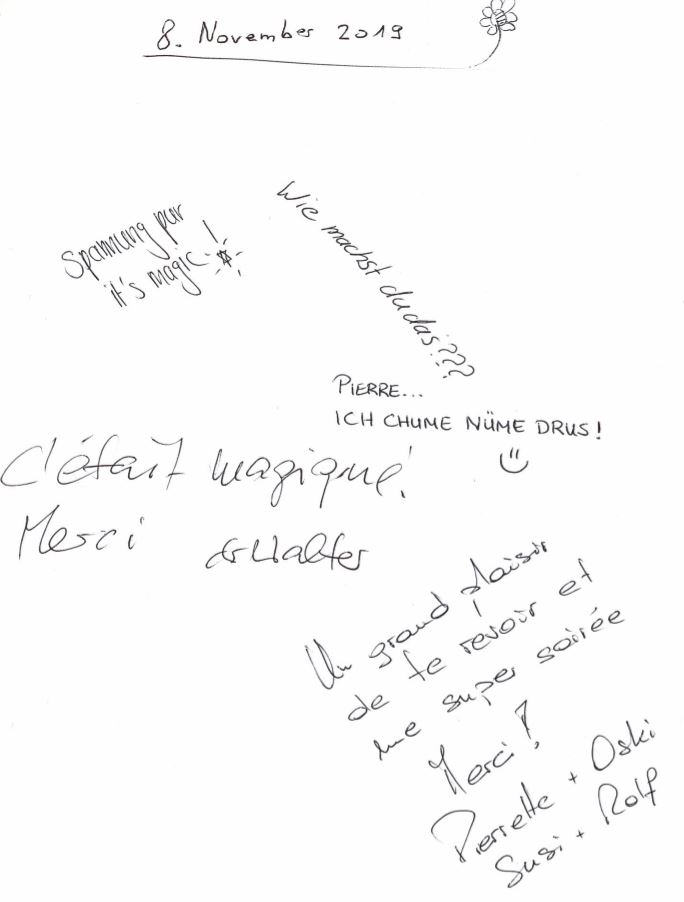 8. November 2019
Spannung pur
it's magic!
Wie machst du das???
PIERRE...
ICH CHUME NÜME DRUS!
C'était magique!
Merci
Un grand plaisir
de te revoir et
une super soirée
Merci!
Pierrette + Oski
Susi + Rolf